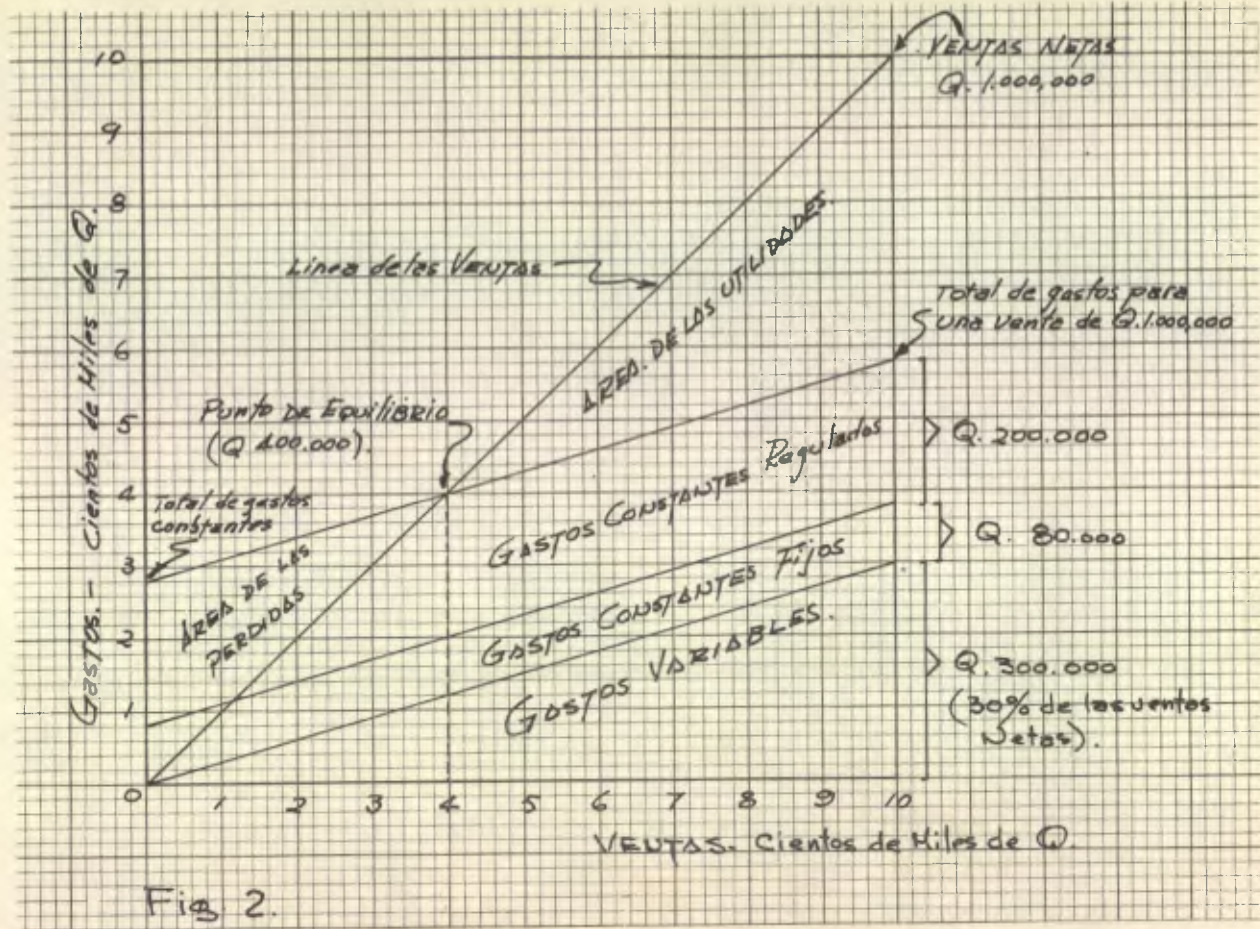 VENTAS NETAS
Q. 1.000,000
10
9
8
7
6
5
4
3
2
1
0
Gastos. - Cientos de Miles de Q.
Linea de las VENTAS
AREA. DE LAS UTILIDADES.
Total de gastos para
una venta de Q. 1.000,000
PUNTO DE EQUILIBRIO
(Q 400.000).
Total de gastos
constantes
AREA DE LAS
PERDIDAS
GASTOS CONSTANTES Regulados
Q. 200.000
GASTOS CONSTANTES Fijos
Q. 80.000
GASTOS VARIABLES.
Q. 300.000
(30% de las ventas
Netas).
1 2 3 4 5 6 7 8 9 10
VENTAS. Cientos de Miles de Q.
Fig 2.